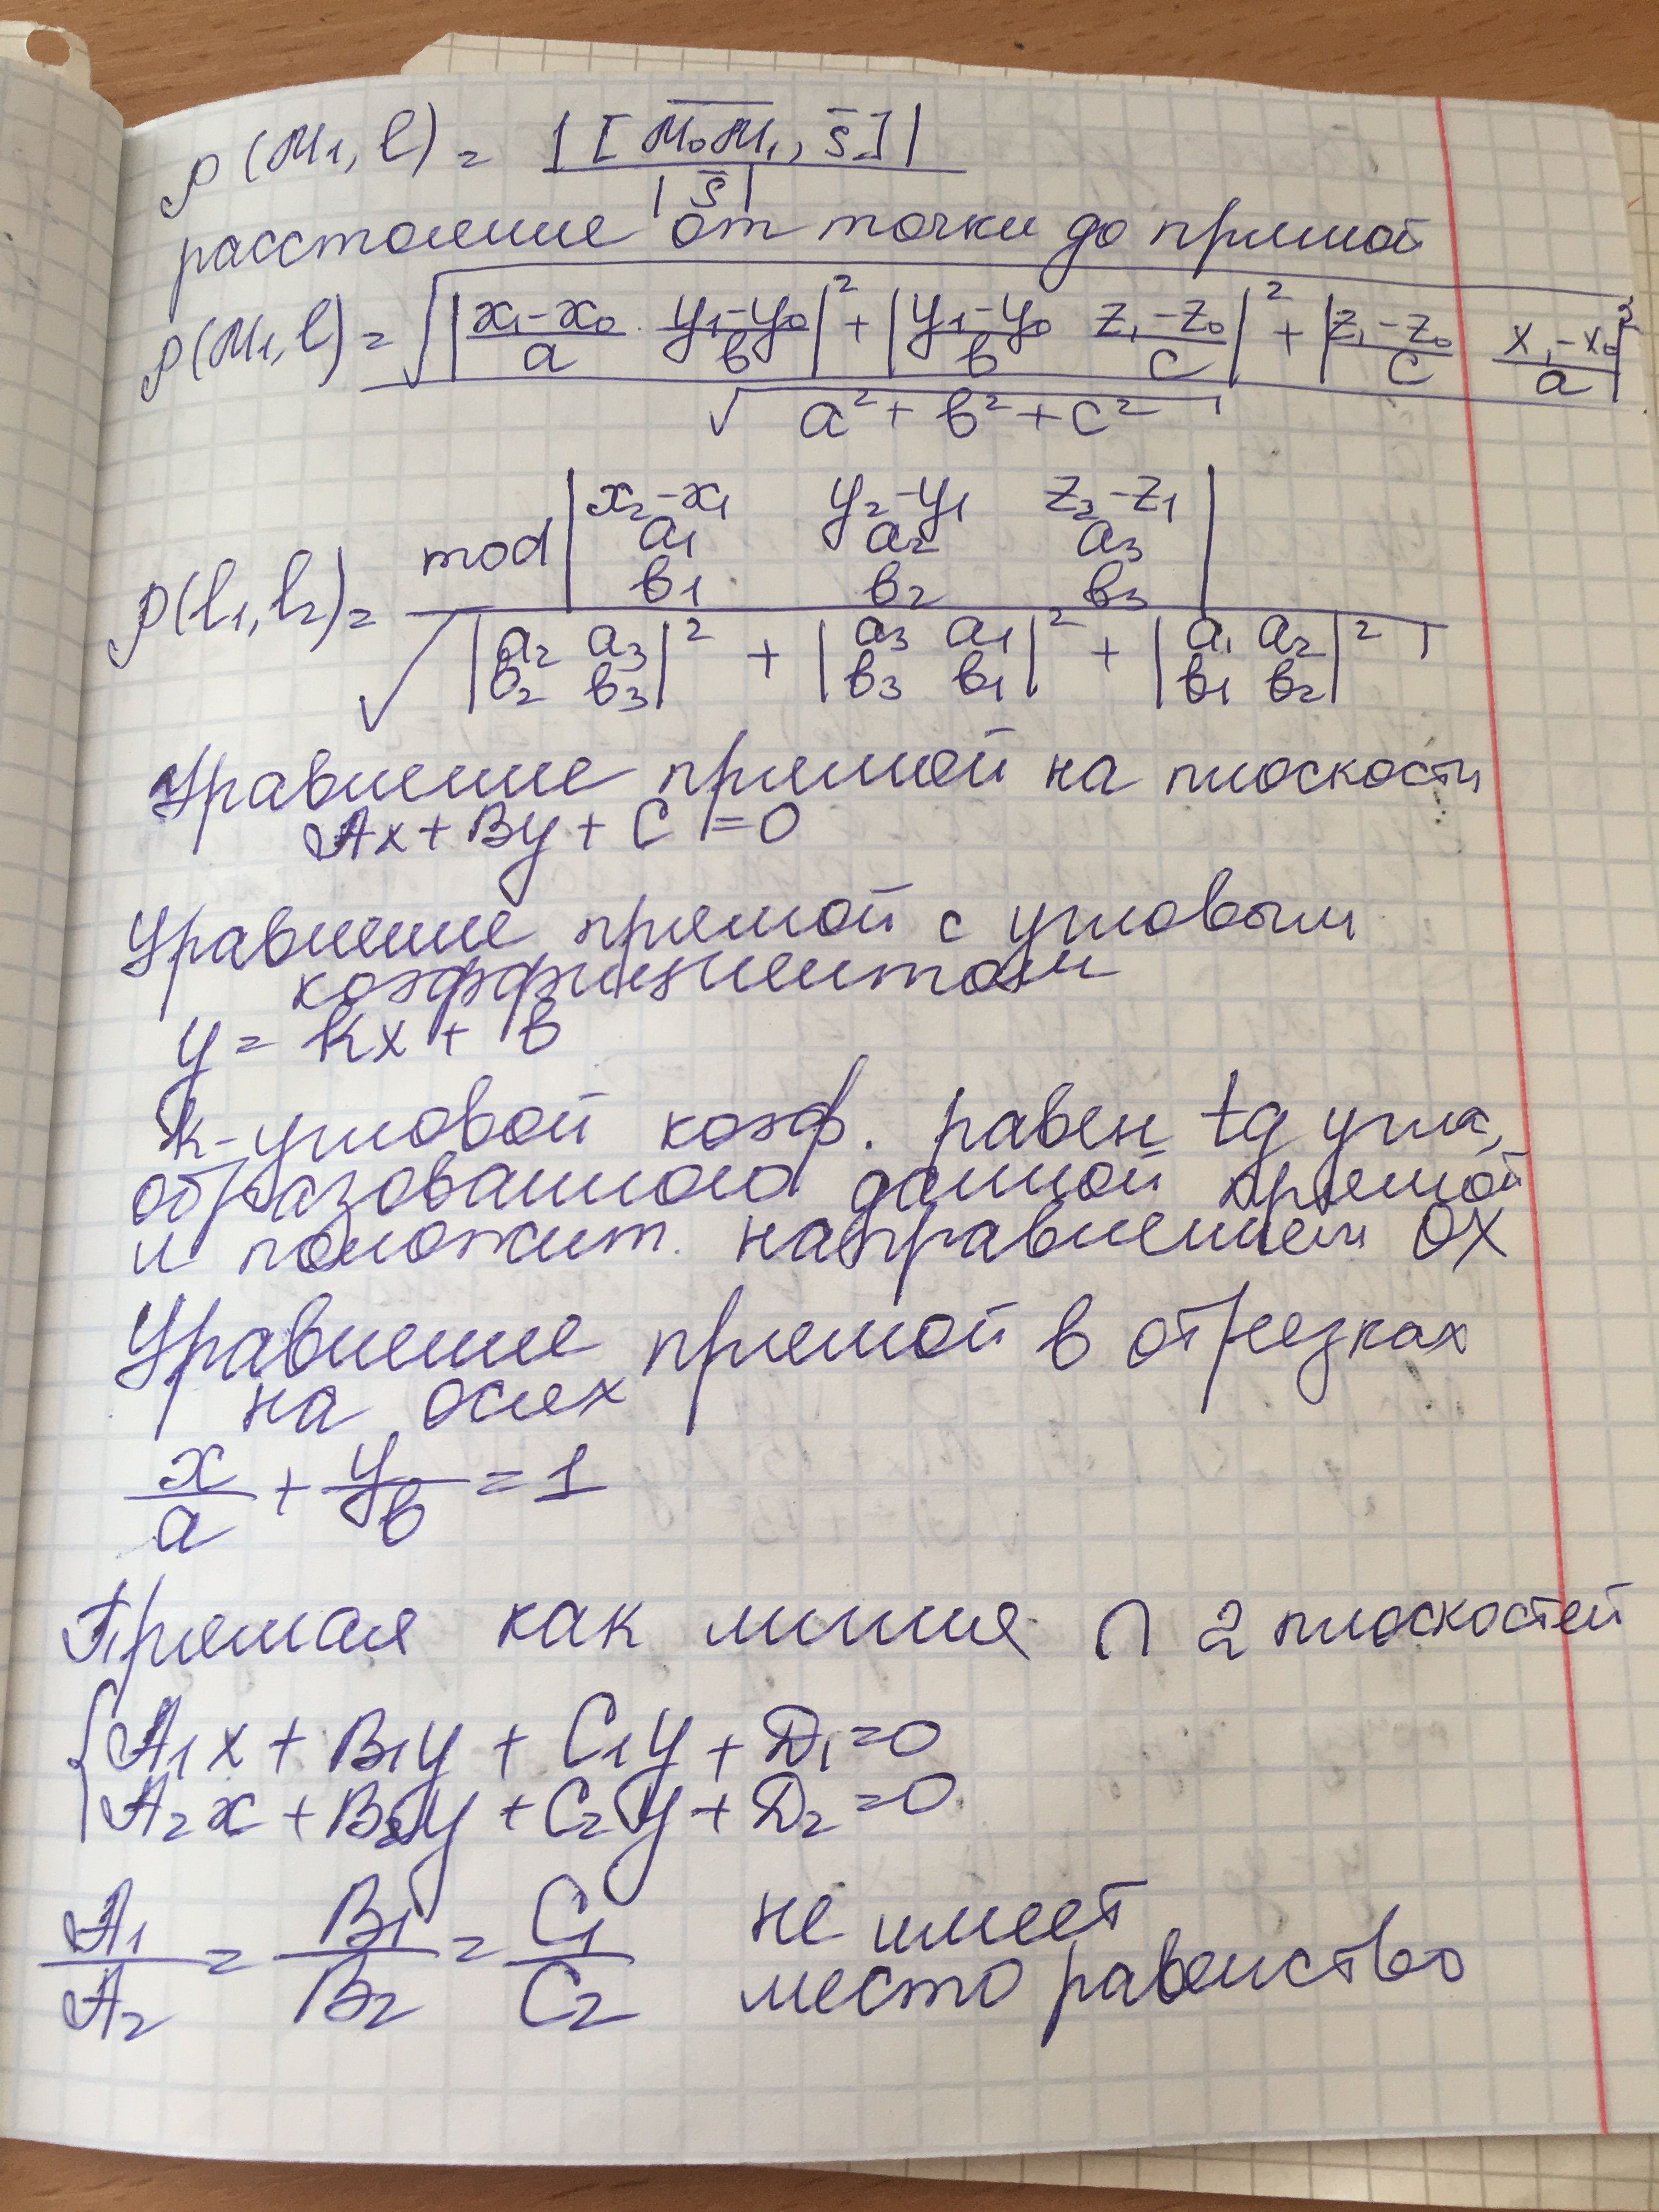 ρ(M₁, l) = |[M̅₀M̅₁, s̅]| / |s̅|
расстояние от точки до прямой
ρ(M₁, l) = √( |(x₁-x₀)/a (y₁-y₀)/b|² + |(y₁-y₀)/b (z₁-z₀)/c|² + |(z₁-z₀)/c (x₁-x₀)/a|² ) / √(a² + b² + c²)
ρ(l₁, l₂) = mod |x₂-x₁ y₂-y₁ z₂-z₁; a₁ a₂ a₃; b₁ b₂ b₃| / √( |a₂ a₃; b₂ b₃|² + |a₃ a₁; b₃ b₁|² + |a₁ a₂; b₁ b₂|² )
Уравнение прямой на плоскости
Ax + By + C = 0
Уравнение прямой с угловым
коэффициентом
y = kx + b
k - угловой коэф. равен tg угла,
образованного данной прямой
и положит. направлением OX
Уравнение прямой в отрезках
на осях
x/a + y/b = 1
Прямая как линия ∩ 2 плоскостей
{ A₁x + B₁y + C₁y + D₁ = 0
A₂x + B₂y + C₂y + D₂ = 0
A₁/A₂ = B₁/B₂ = C₁/C₂ не имеет
место равенство